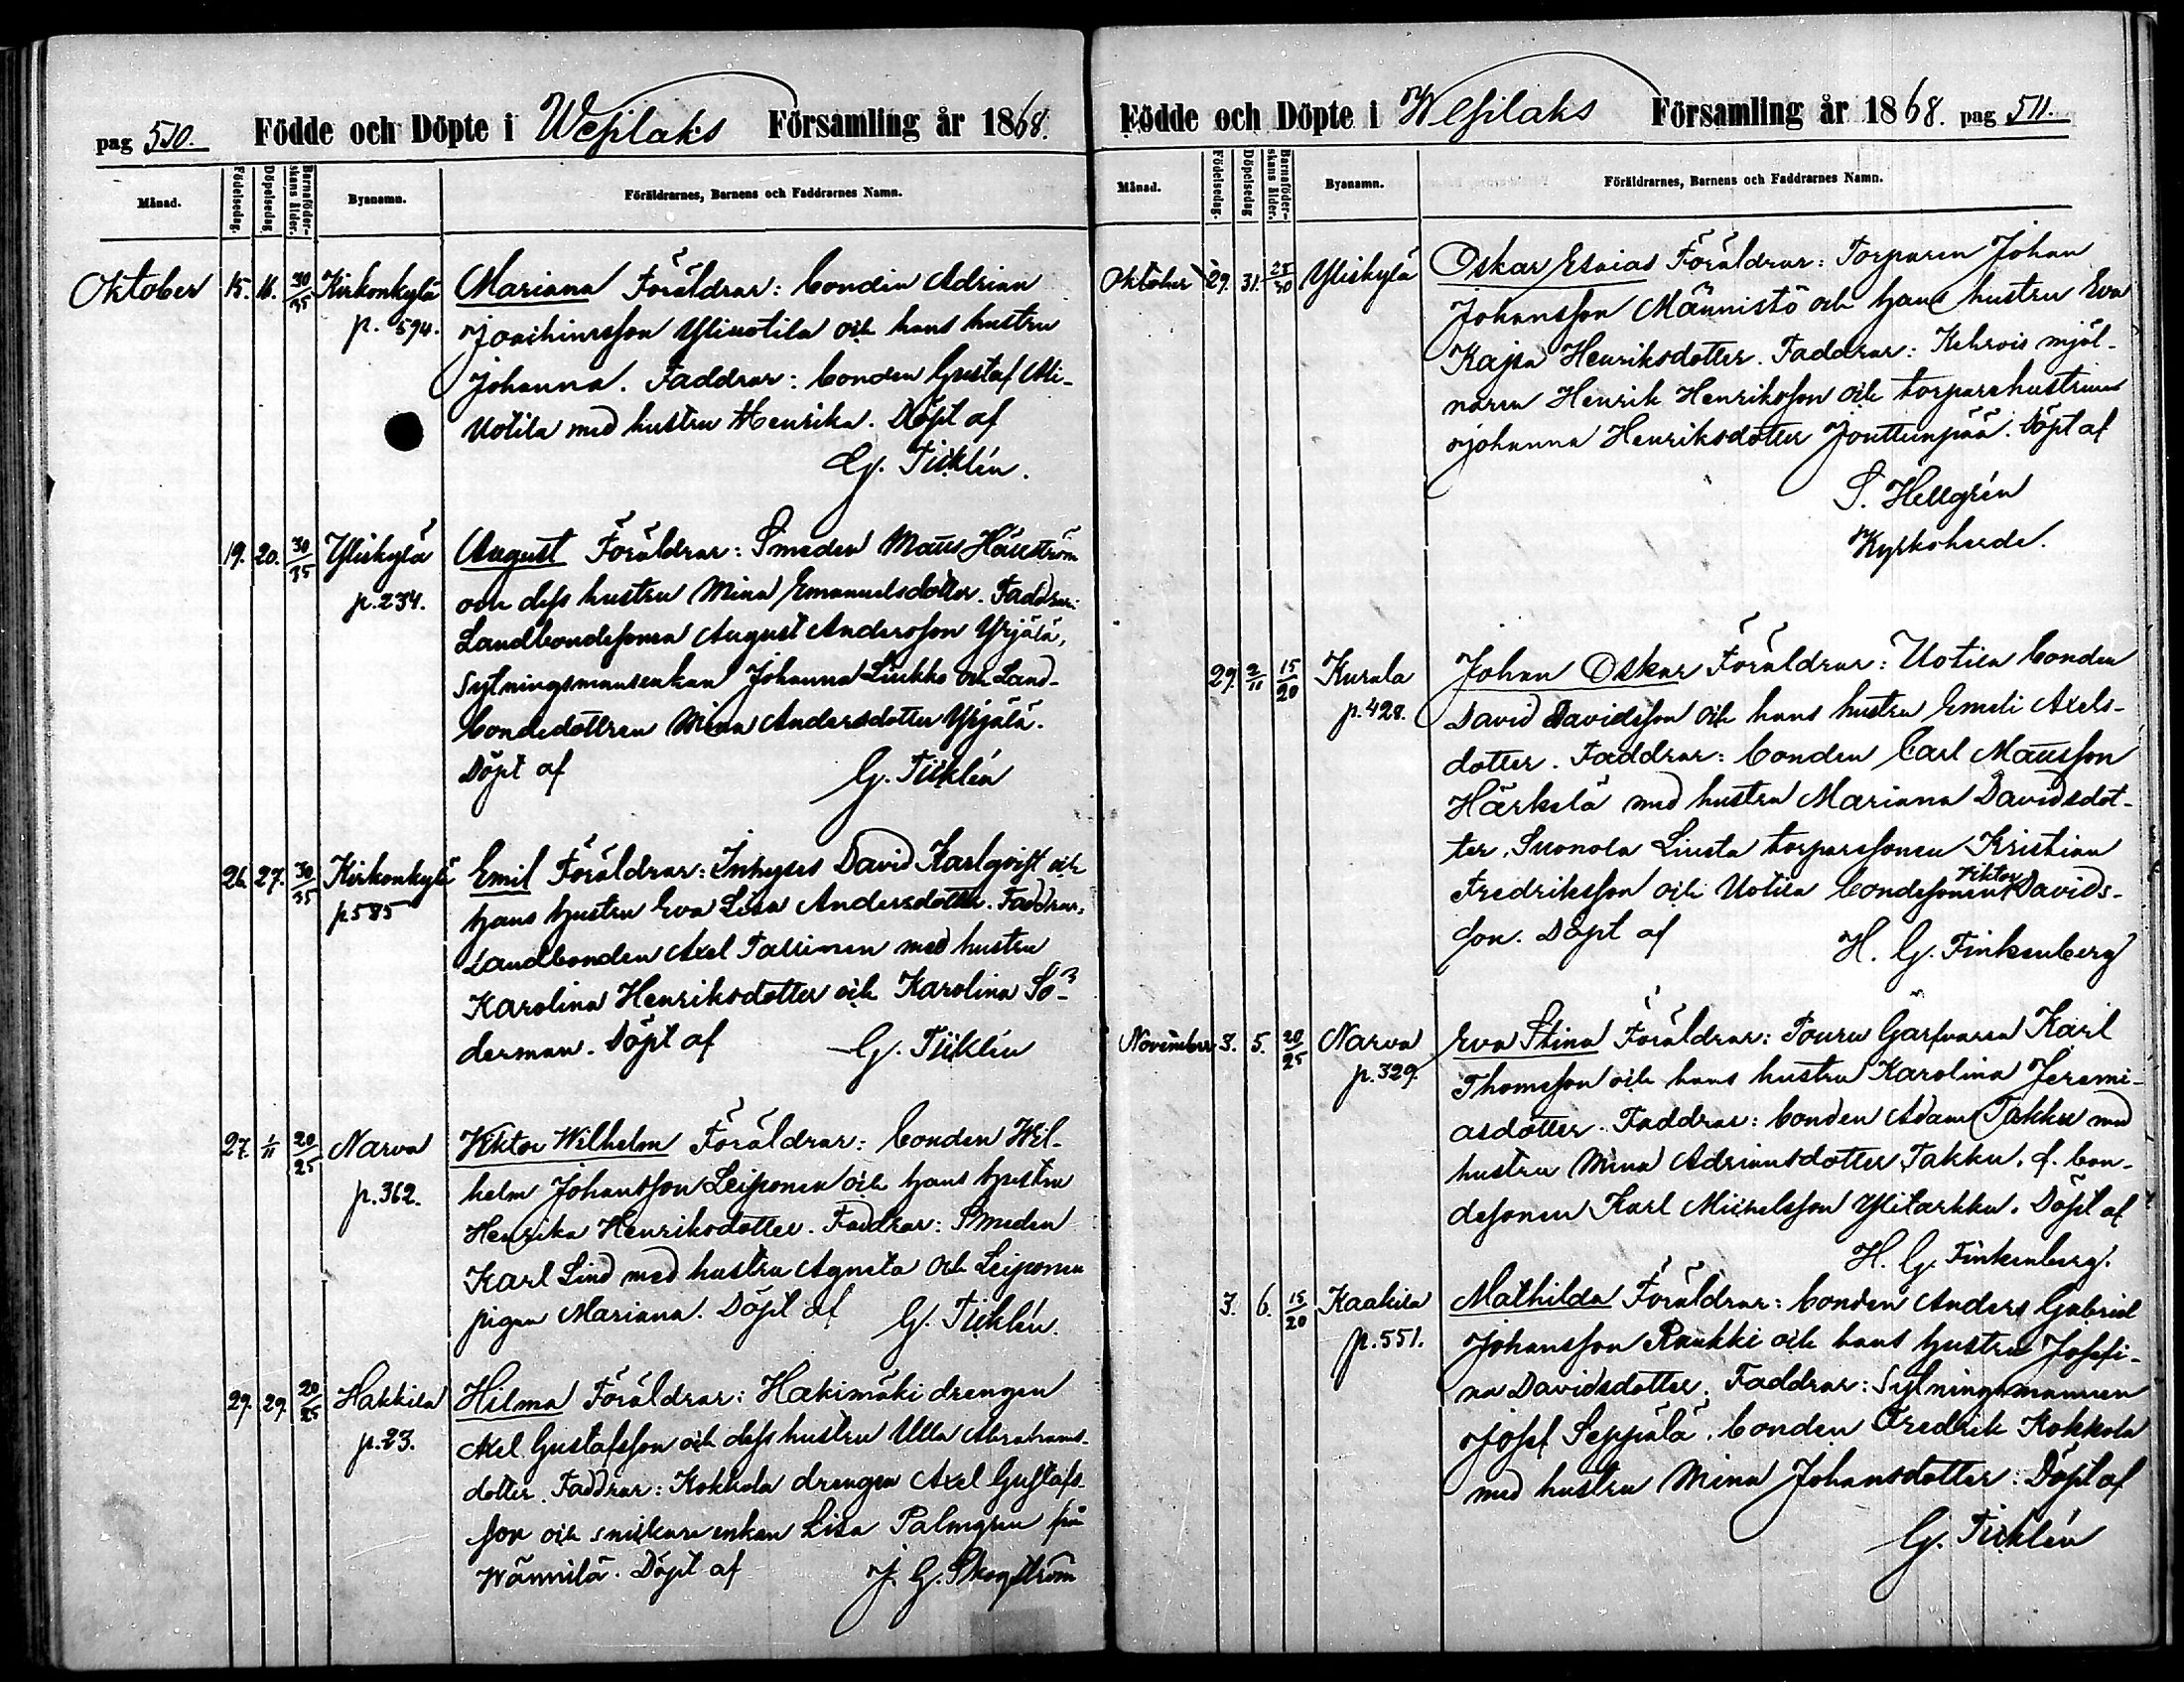 pag 510. Födde och Döpte i Wesilaks Församling år 1868.
Månad. Födelsedag. Döpelsedag. Barnaföderskans ålder. Byanamn. Föräldrarnes, Barnens och Faddrarnes Namn.
Oktober 15. 16. 30/35 Kirkonkylä Mariana Föräldrar: bonden Adrian
p. 594. Joachimsson Yliuotila och hans hustru
Johanna. Faddrar: bonden Gustaf Ali-
Uotila med hustru Henrika. Döpt af
G. Ticklén.
19. 20. 30/35 Yliskylä August Föräldrar: Smeden Maus Hällström
p. 234. och dess hustru Mina Emanuelsdotter. Faddrar:
Landbondesonen August Andersson Yrjälä,
Sytningsmansenkan Johanna Liukko och Land-
bondedottren Mina Andersdotter Yrjälä.
Döpt af G. Ticklén
26. 27. 30/35 Kirkonkylä Emil Föräldrar: Inhyses David Karlqvist och
p. 585 hans hustru Eva Lisa Andersdotter. Faddrar,
Landbonden Axel Tallinen med hustru
Karolina Henriksdotter och Karolina Sö-
derman. Döpt af G. Ticklén
27. 1/11 20/25 Narva Viktor Wilhelm Föräldrar: bonden Wil-
p. 362. helm Johansson Leiponen och hans hustru
Henrika Henriksdotter. Faddrar: Smeden
Karl Lind med hustru Agneta och Leiponen
pigan Mariana. Döpt af G. Ticklén.
29. 29. 20/25 Hakkila Hilma Föräldrar: Hakimäki drengen
p. 23. Axel Gustafsson och dess hustru Ulla Abrahams-
dotter. Faddrar: Kokkola drengen Axel Gustafs-
son och snickare enkan Lisa Palmgren från
Wännilä. Döpt af J. G. Skogström
Födde och Döpte i Wesilaks Församling år 1868. pag 511.
Månad. Födelsedag. Döpelsedag Barnaföderskans ålder. Byanamn. Föräldrarnes, Barnens och Faddrarnes Namn.
Oktober 29. 31. 25/30 Yliskylä Oskar Esaias Föräldrar: Torparen Johan
Johansson Männistö och hans hustru Eva
Kajsa Henriksdotter. Faddrar: Kehrois mjöl-
naren Henrik Henriksson och torparehustrun
Johanna Henriksdotter Jouttunpää. Döpt af
S. Hellgrén
Kyrkoherde.
29. 2/11 15/20 Kurala Johan Oskar Föräldrar: Uotila bonden
p. 428. David Davidsson och hans hustru Emeli Axels-
dotter. Faddrar: bonden Carl Mausson
Härkälä med hustru Mariana Davidsdot-
ter, Suonola Liusta torparesonen Kristian
Fredriksson och Uotila bondesonen Viktor Davids-
son. Döpt af H. G. Finkenberg
November 3. 5. 20/25 Narva Eva Stina Föräldrar: Touru Garfvaren Karl
p. 329. Thomsson och hans hustru Karolina Jeremi-
asdotter. Faddrar: bonden Adam Takku med
hustru Mina Adriansdotter Takku, f. bon-
desonen Karl Michelsson Ylitarkku. Döpt af
H. G. Finkenberg.
3. 6. 15/20 Kaakila Mathilda Föräldrar: bonden Anders Gabriel
p. 551. Johansson Raukki och hans hustru Josefi-
na Davidsdotter. Faddrar: Sytningsmannen
Josef Seppälä, bonden Fredrik Kokkola
med hustru Mina Johansdotter. Döpt af
G. Ticklén